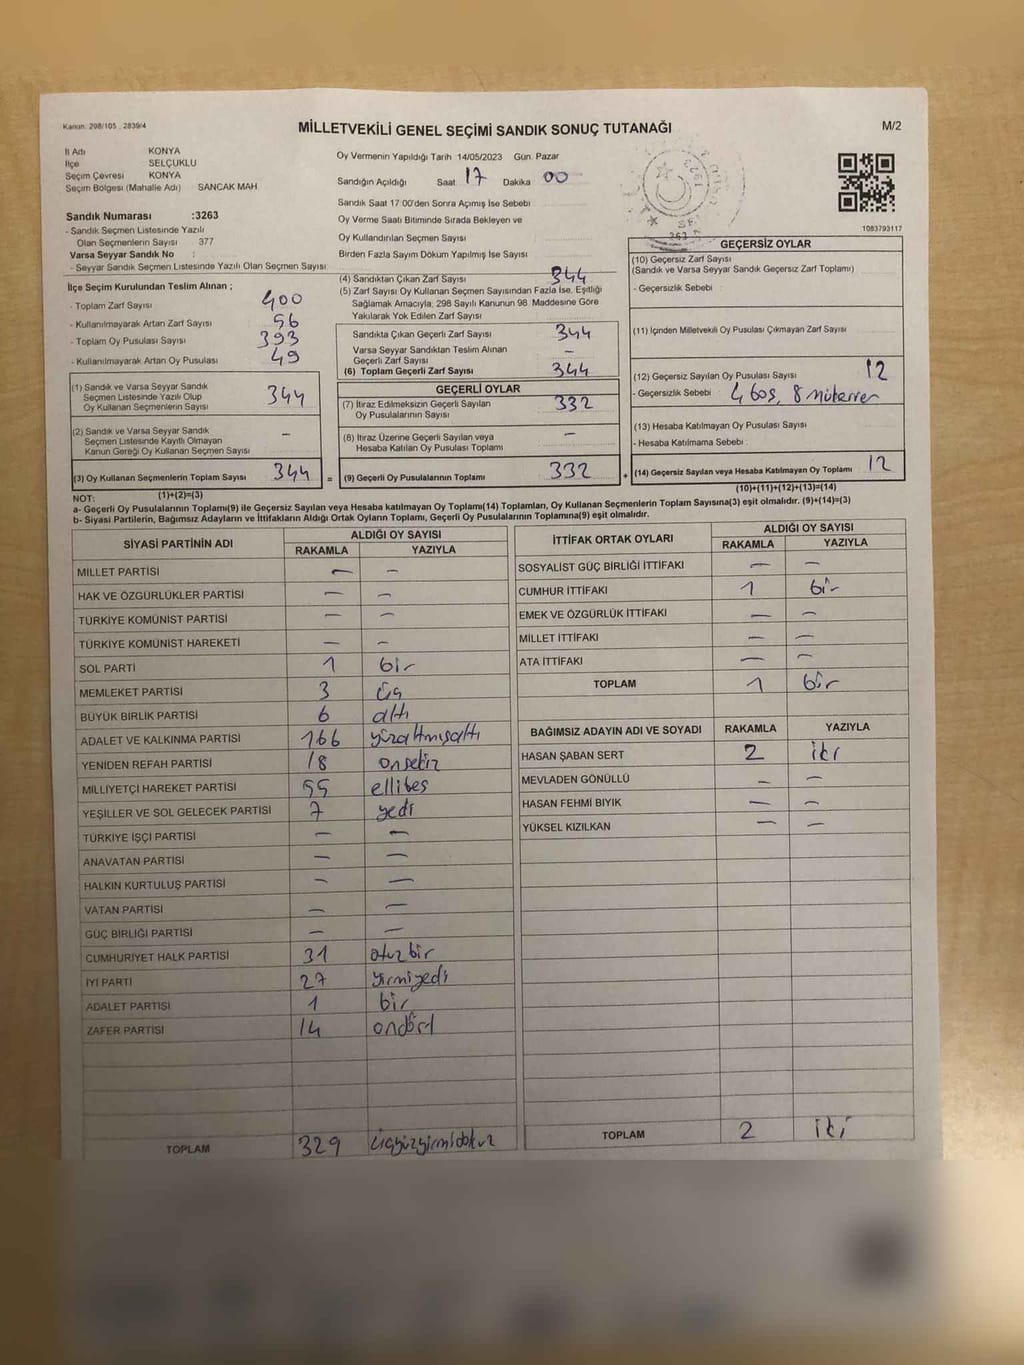 Kanun: 298/105 , 2839/4
MİLLETVEKİLİ GENEL SEÇİMİ SANDIK SONUÇ TUTANAĞI
M/2
İl Adı KONYA
İlçe SELÇUKLU
Seçim Çevresi KONYA
Seçim Bölgesi (Mahalle Adı) SANCAK MAH
Sandık Numarası :3263
- Sandık Seçmen Listesinde Yazılı
Olan Seçmenlerin Sayısı 377
Varsa Seyyar Sandık No :
- Seyyar Sandık Seçmen Listesinde Yazılı Olan Seçmen Sayısı
Oy Vermenin Yapıldığı Tarih 14/05/2023 Gün. Pazar
Sandığın Açıldığı Saat 17 Dakika 00
Sandık Saat 17:00'den Sonra Açımış İse Sebebi
Oy Verme Saati Bitiminde Sırada Bekleyen ve
Oy Kullandırılan Seçmen Sayısı
Birden Fazla Sayım Döküm Yapılmış İse Sayısı
1083793117
İlçe Seçim Kurulundan Teslim Alınan ;
- Toplam Zarf Sayısı 400
- Kullanılmayarak Artan Zarf Sayısı 56
- Toplam Oy Pusulası Sayısı 393
- Kullanılmayarak Artan Oy Pusulası 49
(1) Sandık ve Varsa Seyyar Sandık
Seçmen Listesinde Yazılı Olup
Oy Kullanan Seçmenlerin Sayısı 344
(2) Sandık ve Varsa Seyyar Sandık
Seçmen Listesinde Kayıtlı Olmayan
Kanun Gereği Oy Kullanan Seçmen Sayısı -
(3) Oy Kullanan Seçmenlerin Toplam Sayısı 344 =
(1)+(2)=(3)
(4) Sandıktan Çıkan Zarf Sayısı 344
(5) Zarf Sayısı Oy Kullanan Seçmen Sayısından Fazla İse, Eşitliği
Sağlamak Amacıyla; 298 Sayılı Kanunun 98. Maddesine Göre
Yakılarak Yok Edilen Zarf Sayısı
Sandıkta Çıkan Geçerli Zarf Sayısı 344
Varsa Seyyar Sandıktan Teslim Alınan
Geçerli Zarf Sayısı -
(6) Toplam Geçerli Zarf Sayısı 344
GEÇERLİ OYLAR
(7) İtiraz Edilmeksizin Geçerli Sayılan
Oy Pusulalarının Sayısı 332
(8) İtiraz Üzerine Geçerli Sayılan veya
Hesaba Katılan Oy Pusulası Toplamı -
(9) Geçerli Oy Pusulalarının Toplamı 332 +
GEÇERSİZ OYLAR
(10) Geçersiz Zarf Sayısı
(Sandık ve Varsa Seyyar Sandık Geçersiz Zarf Toplamı)
- Geçersizlik Sebebi :
(11) İçinden Milletvekili Oy Pusulası Çıkmayan Zarf Sayısı
(12) Geçersiz Sayılan Oy Pusulası Sayısı 12
- Geçersizlik Sebebi 4 boş, 8 mükerrer
(13) Hesaba Katılmayan Oy Pusulası Sayısı
- Hesaba Katılmama Sebebi :
(14) Geçersiz Sayılan veya Hesaba Katılmayan Oy Toplamı 12
(10)+(11)+(12)+(13)=(14)
NOT:
a- Geçerli Oy Pusulalarının Toplamı(9) ile Geçersiz Sayılan veya Hesaba katılmayan Oy Toplamı(14) Toplamları, Oy Kullanan Seçmenlerin Toplam Sayısına(3) eşit olmalıdır. (9)+(14)=(3)
b- Siyasi Partilerin, Bağımsız Adayların ve İttifakların Aldığı Ortak Oyların Toplamı, Geçerli Oy Pusulalarının Toplamına(9) eşit olmalıdır.
SİYASİ PARTİNİN ADI ALDIĞI OY SAYISI
RAKAMLA YAZIYLA
MİLLET PARTİSİ - -
HAK VE ÖZGÜRLÜKLER PARTİSİ - -
TÜRKİYE KOMÜNİST PARTİSİ - -
TÜRKİYE KOMÜNİST HAREKETİ - -
SOL PARTİ 1 bir
MEMLEKET PARTİSİ 3 üç
BÜYÜK BİRLİK PARTİSİ 6 altı
ADALET VE KALKINMA PARTİSİ 166 yüzaltmışaltı
YENİDEN REFAH PARTİSİ 18 onsekiz
MİLLİYETÇİ HAREKET PARTİSİ 55 ellibeş
YEŞİLLER VE SOL GELECEK PARTİSİ 7 yedi
TÜRKİYE İŞÇİ PARTİSİ - -
ANAVATAN PARTİSİ - -
HALKIN KURTULUŞ PARTİSİ - -
VATAN PARTİSİ - -
GÜÇ BİRLİĞİ PARTİSİ - -
CUMHURİYET HALK PARTİSİ 31 otuzbir
İYİ PARTİ 27 yirmiyedi
ADALET PARTİSİ 1 bir
ZAFER PARTİSİ 14 ondört
TOPLAM 329 üçyüzyirmidokuz
İTTİFAK ORTAK OYLARI ALDIĞI OY SAYISI
RAKAMLA YAZIYLA
SOSYALİST GÜÇ BİRLİĞİ İTTİFAKI - -
CUMHUR İTTİFAKI 1 bir
EMEK VE ÖZGÜRLÜK İTTİFAKI - -
MİLLET İTTİFAKI - -
ATA İTTİFAKI - -
TOPLAM 1 bir
BAĞIMSIZ ADAYIN ADI VE SOYADI RAKAMLA YAZIYLA
HASAN ŞABAN SERT 2 iki
MEVLADEN GÖNÜLLÜ - -
HASAN FEHMİ BIYIK - -
YÜKSEL KIZILKAN - -
TOPLAM 2 iki